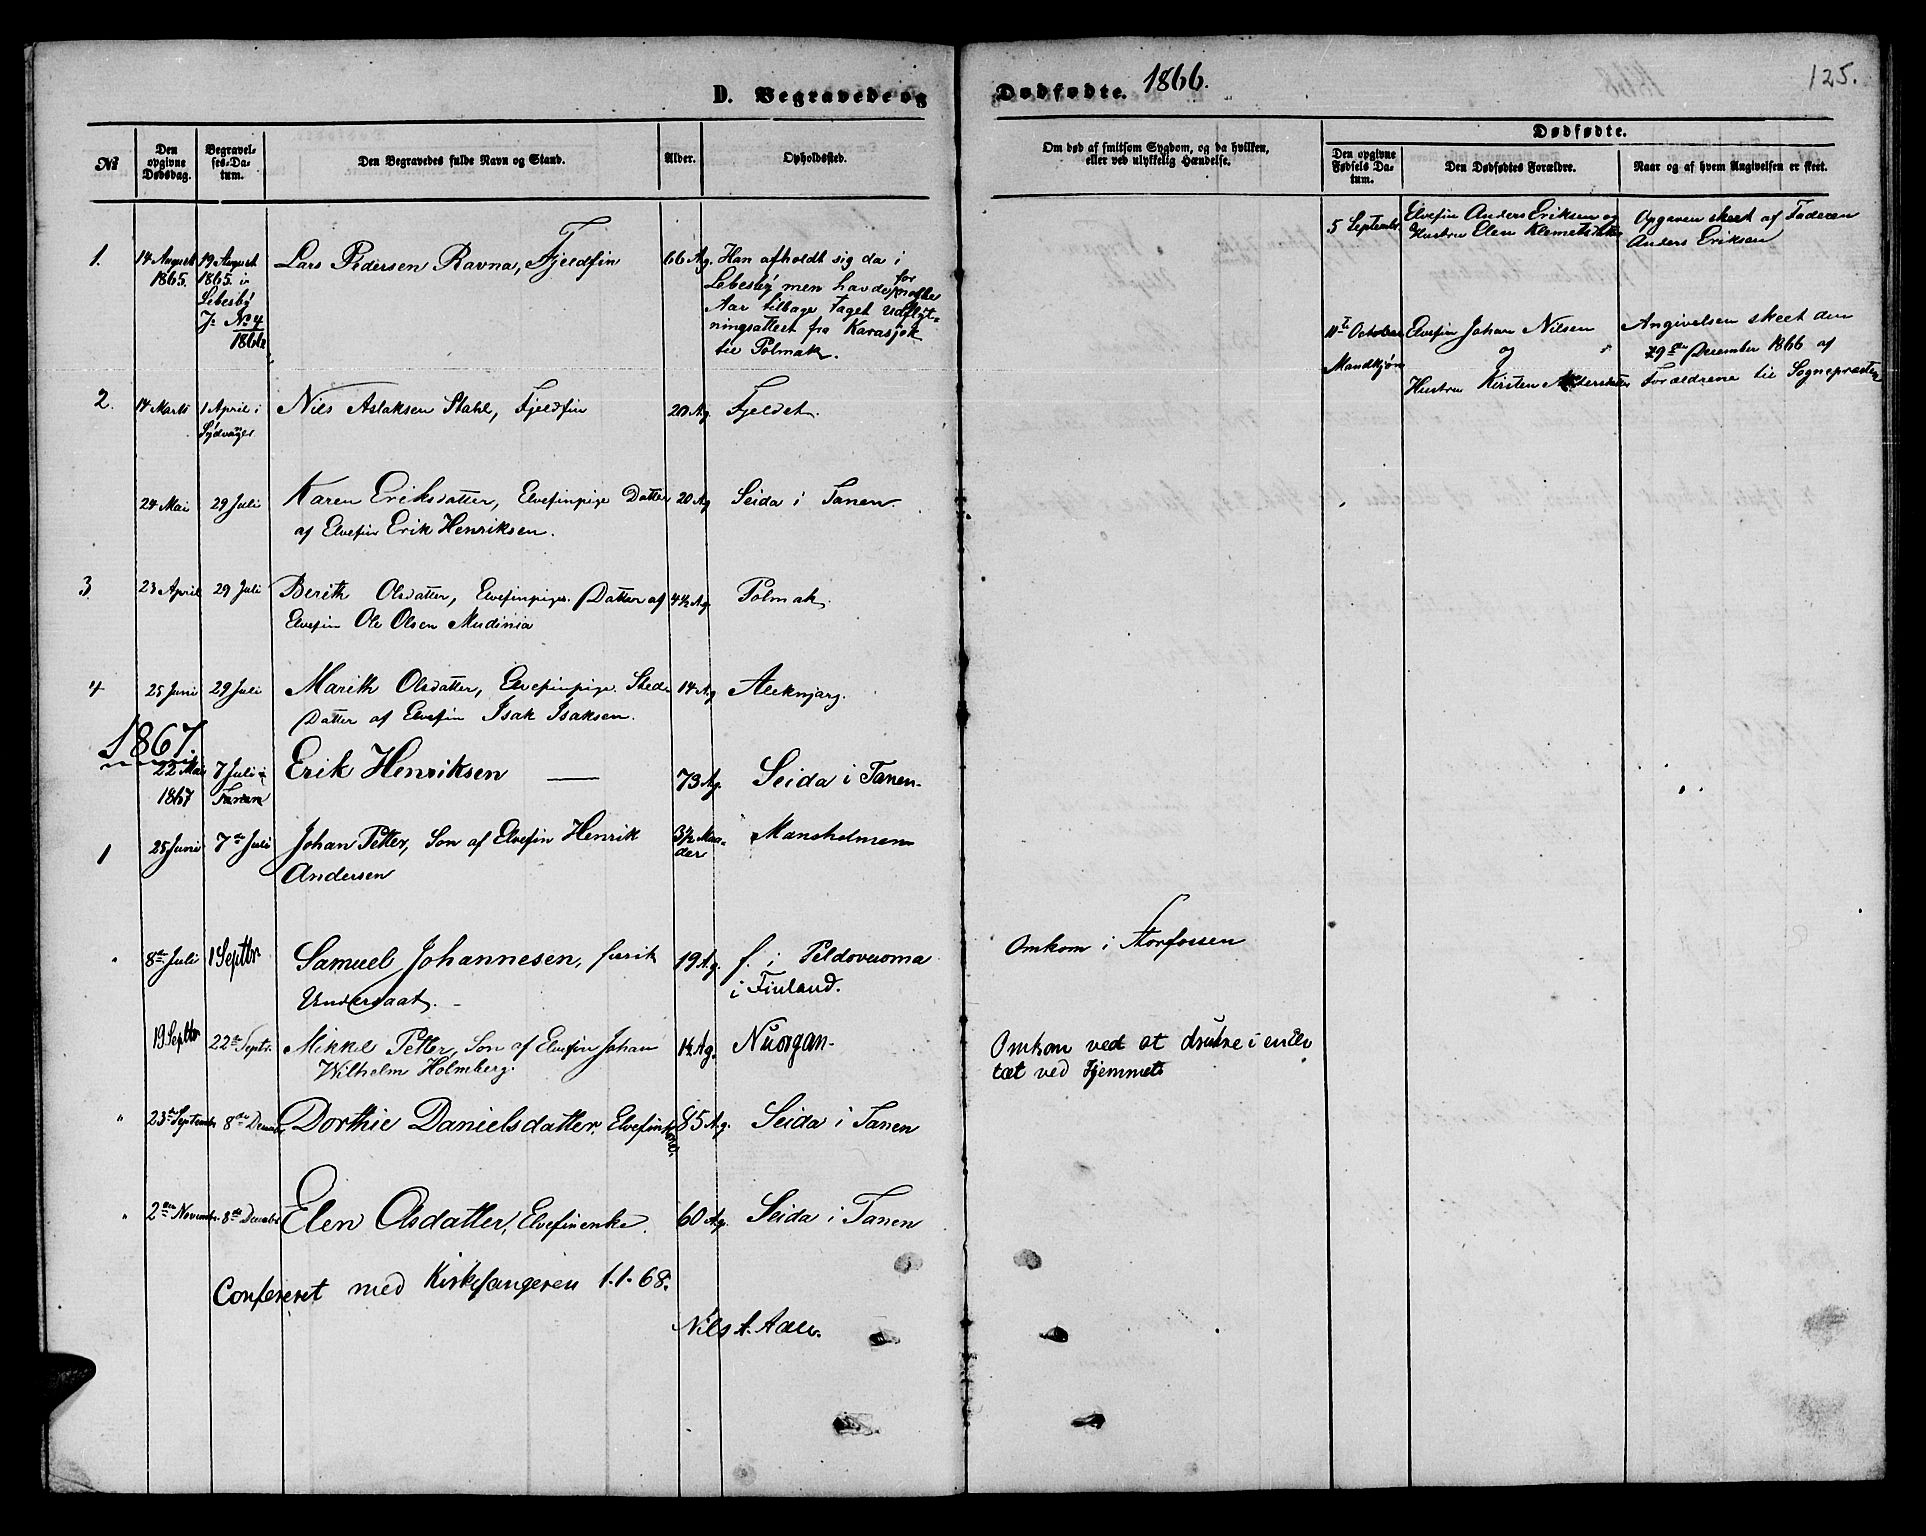 D. Begravede og Dødfødte. 1866.
125.
No
Den opgivne Dødsdag.
Begravelses-Datum.
Den Begravedes fulde Navn og Stand.
Alder.
Opholdssted.
Om død af smitsom Sygdom, og da hvilken,
eller ved ulykkelig Hændelse.
Dødfødte.
Den opgivne Fødsels Datum.
Den Dødfødtes Forældre.
Naar og af hvem Angivelsen er skeet.
1. 14 August 19 August Lars Pedersen Ravna, Fjeldfin 66 Ag. Han afholdt sig da i
1865. 1865 i
Lebesby
No 4
1866
Lebesby men havde for
Aar tilbage taget Udflyt-
ningsattest fra Karasjok
til Polmak.
5 September Elvefin Anders Eriksen og Opgaven skeet af Faderen
Hustru Elen Klemetsdatter Anders Eriksen
11te October Elvefin Johan Nilsen Angivelsen skeet den
og 29de December 1866 af
Mandkjøn Hustru Kirsten Forældrene til Sognepræsten
2. 14 Marts 1 April i Nils Aslaksen Stahl, Fjeldfin 20 Ag Fjeldet.
Sydvanger
24 Mai 29 Juli Karen Eriksdatter, Elvefinpige Datter 20 Ag Seida i Tanen.
af Elvefin Erik Henriksen.
3 23 April 29 Juli Berith Olsdatter, Elvefinpige. Datter af 4½ Ag. Polmak.
Elvefin Ole Olsen Mudinia
4 25 Juni 29 Juli Marith Olsdatter, Elvefinpige. Sted- 14 Ag Aleknjarg.
Datter af Elvefin Isak Isaksen.
1867.
22 Mai 7 Juli i Erik Henriksen — 73 Ag. Seida i Tanen.
1867 Tanen
1 25 Juni 7de Juli Johan Petter, Søn af Elvefin Henrik 3½ Maa- Mansholmen
Andersen der
" 8de Juli 1 Septbr Samuel Johannesen, finsk 19 Ag. f. i Peldovuoma Omkom i Storfossen
Undersaat. i Finland.
19 Septbr 22de Septr. Mikkel Petter, Søn af Elvefin Johan 14 Ag. Nuorgan. Omkom ved at drukne i en Elv
Wilhelm Holmberg. tæt ved Hjemmet
" 23de September 8de December Dorthie Danielsdatter, Elvefinkone. 85 Ag. Seida i Tanen
" 2den November 8de December Elen Olsdatter, Elvefinenke. 60 Ag. Seida i Tanen
Confereret med Kirkesangeren 1.1.68.
Nils A. Aall.